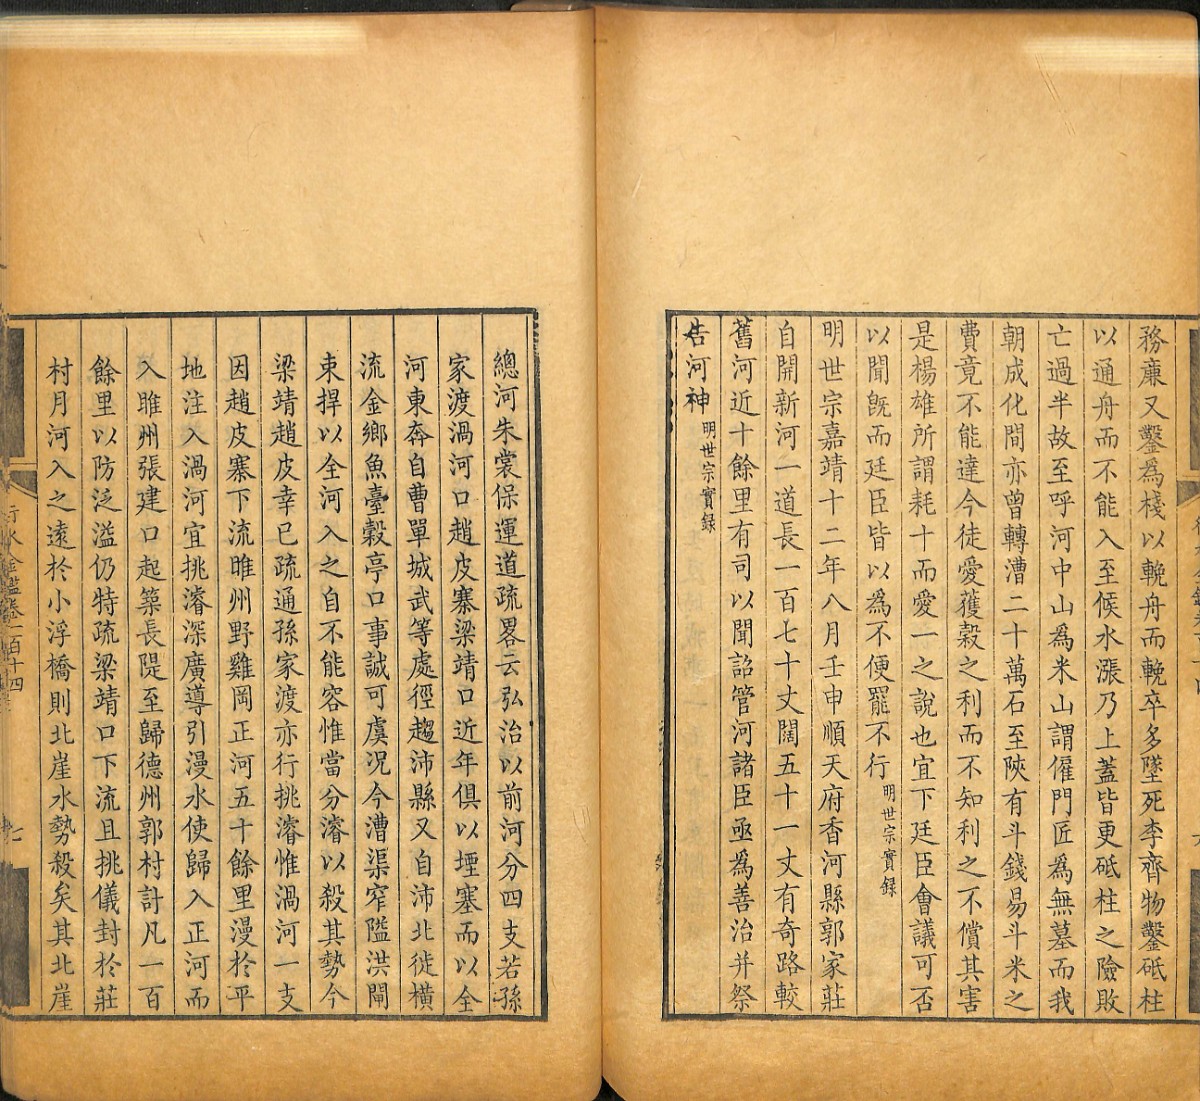 務亷又鑿為棧以輓舟而輓卒多墜死李齊物鑿砥柱
以通舟而不能入至候水漲乃上蓋皆更砥柱之險敗
亡過半故至呼河中山為米山謂僱門匠為無墓而我
朝成化間亦曾轉漕二十萬石至陝有斗錢易斗米之
費竟不能達今徒愛獲穀之利而不知利之不償其害
是楊雄所謂耗十而愛一之說也宜下廷臣會議可否
以聞旣而廷臣皆以為不便罷不行明世宗實錄
明世宗嘉靖十二年八月壬申順天府香河縣郭家莊
自開新河一道長一百七十丈闊五十一丈有奇路較
舊河近十餘里有司以聞詔管河諸臣亟為善治并祭
告河神明世宗實錄
總河朱裳保運道疏畧云弘治以前河分四支若孫
家渡渦河口趙皮寨梁靖口近年俱以堙塞而以全
河東奔自曹單城武等處徑趨沛縣又自沛北徙橫
流金鄉魚臺穀亭口事誠可虞况今漕渠窄隘洪閘
束捍以全河入之自不能容惟當分濬以殺其勢今
梁靖趙皮幸已疏通孫家渡亦行挑濬惟渦河一支
因趙皮寨下流睢州野雞岡正河五十餘里漫於平
地注入渦河宜挑濬深廣導引漫水使歸入正河而
入睢州張建口起築長隄至歸德州郭村計凡一百
餘里以防泛溢仍特疏梁靖口下流且挑儀封於莊
村月河入之遠於小浮橋則北崖水勢殺矣其北崖
行水金鑑卷一百十四
七